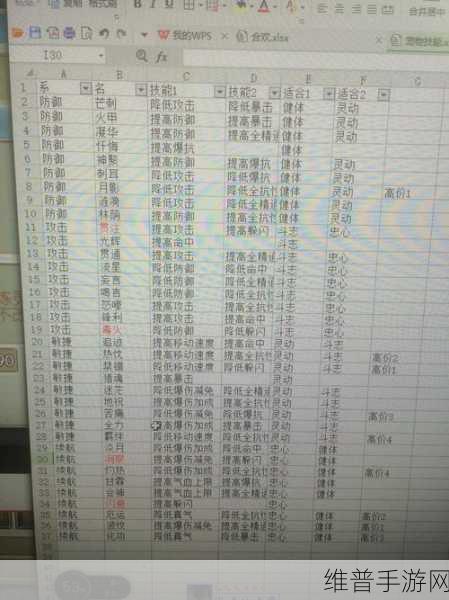 我的WPS
合欢.xlsx
宠物技能.x
合并居中
I30
fx
A B C D E F G
1 系 名 技能1 技能2 适合1 适合2
2 防御 芒刺 降低攻击 降低暴击 健体 灵动
3 防御 火甲 提高防御 提高暴击 健体 灵动
4 防御 凝华 提高防御 提高全精通 健体 灵动
5 防御 忏悔 提高爆抗 健体
6 防御 神聚 提高防御 提高爆抗 健体 灵动
7 防御 刺耳 降低攻击 降低爆抗 健体 灵动
8 防御 月影 降低攻击 降低全抗性 健体 灵动 高价1
9 防御 涟漪 降低攻击 降低全精通 健体 灵动
10 防御 林荫 提高防御 提高全抗性 健体 灵动
11 攻击 贯注 提高攻击 提高躲闪 斗志 忠心
12 攻击 光辉 提高命中 斗志
13 攻击 贯通 提高攻击 提高全精通 斗志 忠心
14 攻击 凌星 降低防御 降低命中 斗志 忠心
15 攻击 妄言 降低防御 降低全精通 斗志 忠心
16 攻击 喝言 降低防御 降低全抗性 斗志 忠心
17 攻击 怒嚎 提高攻击 提高全抗性 斗志 忠心
18 攻击 锋利 提高攻击 提高命中 斗志 忠心
19 攻击 毒火 降低防御 降低躲闪 斗志 忠心
20 敏捷 追迹 提高移动速度 提高命中 灵动 斗志
21 敏捷 热忱 提高移动速度 提高全抗性 灵动 斗志 高价2
22 敏捷 禁锢 降低移动速度 降低躲闪 灵动 斗志 高价1
23 敏捷 猎魂 提高暴击 灵动
24 敏捷 迷茫 降低爆伤减免 降低全精通 灵动 斗志
25 敏捷 地祝 提高爆伤加成 提高全抗性 灵动 斗志
26 敏捷 苦痛 降低爆伤减免 降低全抗性 灵动 斗志 高价3
27 敏捷 全力 提高爆伤加成 提高暴击 灵动 斗志
28 敏捷 羁绊 降低移动速度 降低全抗性 灵动 斗志 高价4
29 续航 降低爆伤加成 降低命中 忠心 健体
30 续航 提高爆伤减免 提高躲闪 忠心 健体
31 续航 灼热 降低爆伤加成 降低全抗性 忠心 健体 高价4
32 续航 甘霖 提高气血上限 提高全精通 忠心 健体
33 续航 会神 提高气血上限 提高全抗性 忠心 健体
34 续航 闪避 提高躲闪 忠心
35 续航 厄运 降低真气 降低全抗性 忠心 健体 高价2
36 续航 波纹 提高爆伤减免 提高全抗性 忠心 健体 高价1
37 续航 化功 降低真气 降低暴击 忠心 健体 高价3
维普手游网